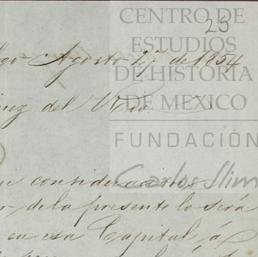 CENTRO DE
ESTUDIOS
DE HISTORIA
DE MEXICO
FUNDACIÓN
Carlos Slim
25
Agosto 27 de 1854
del
consideraciones
de la presente lo será
en esa Capital, á